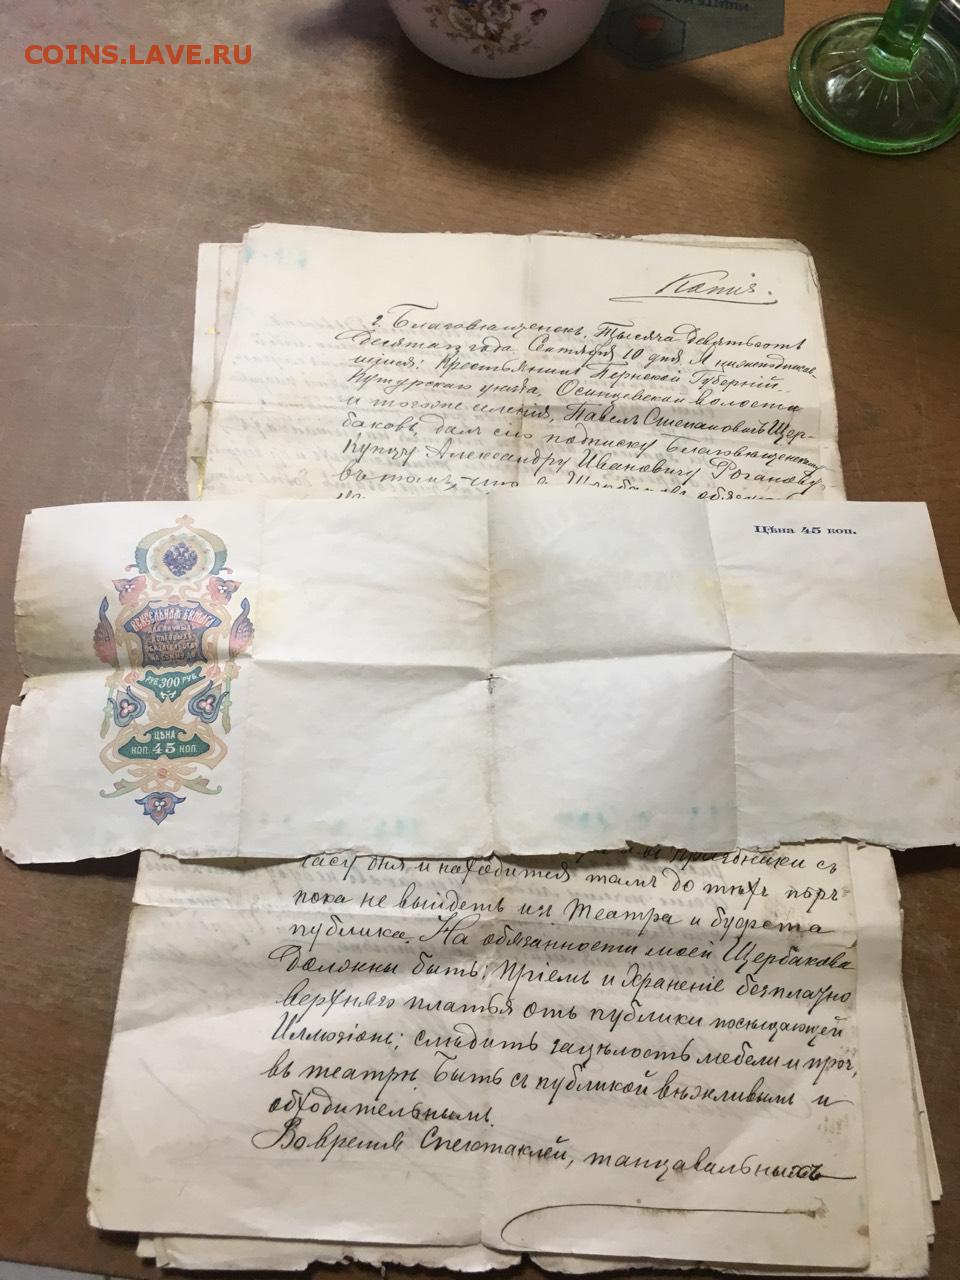 COINS.LAVE.RU
Копія.
г. Благовѣщенскъ, Тысяча Девятьсотъ
Десятаго года Сентября 10 дня Я нижеподписав-
шійся: Крестьянинъ Пермской Губерніи
уѣзда, Осинцевской волости
и тогоже селенія, Павелъ Степановичъ Щер-
баковъ далъ сію подписку Благовѣщенскому
Купцу Александру Ивановичу Роганову
въ томъ, что я Щербаковъ
Цѣна 45 коп.
ВЕКСЕЛЬНАЯ БУМАГА
РУБ. 300 РУБ.
ЦѢНА
КОП. 45 КОП.
часу дня и находится тамъ до тѣхъ поръ
пока не выйдетъ изъ театра и буфета
публика. На обязанности моей Щербакова
Должны быть: пріемъ и Храненіе безплатно
верхняго платья отъ публики посѣщающей
Иллюзіонъ; слѣдить зацѣлость мебели и проч,
въ театрѣ Быть съ публикой вѣжливымъ и
обходительнымъ.
Вовремя Спектаклей, танцавальныхъ